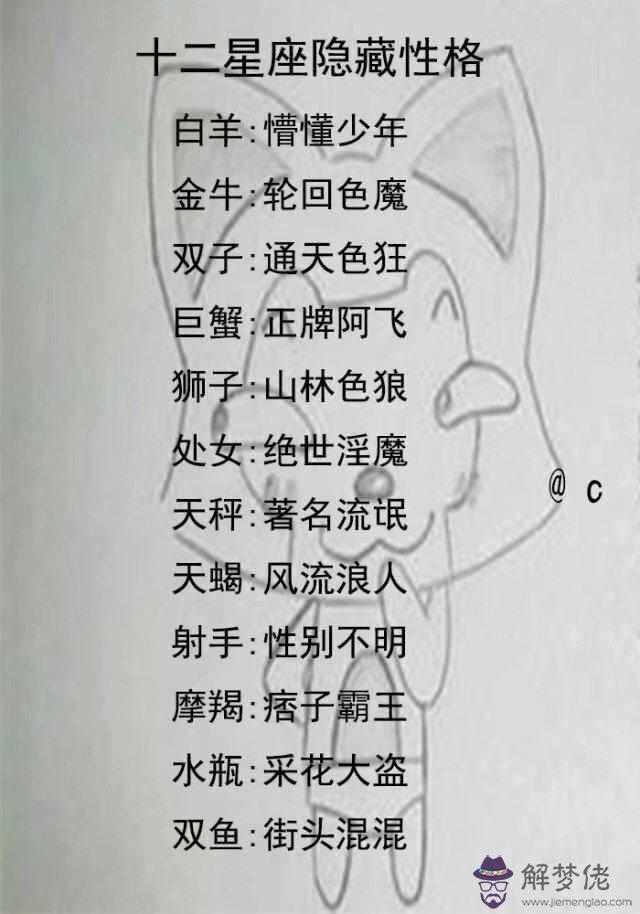 十二星座隐藏性格
白羊:懵懂少年
金牛:轮回色魔
双子:通天色狂
巨蟹:正牌阿飞
狮子:山林色狼
处女:绝世淫魔
@ c
天秤:著名流氓
天蝎:风流浪人
射手:性别不明
摩羯:痞子霸王
水瓶:采花大盗
双鱼:街头混混
解梦佬
www.jiemenglao.com